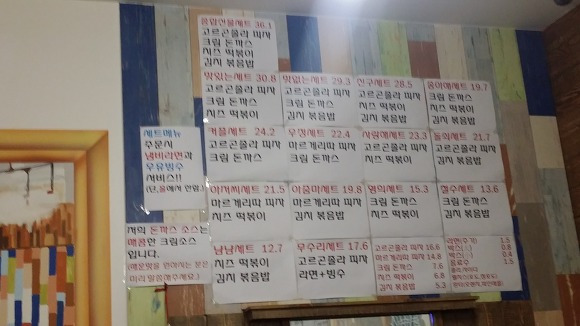 종합선물세트 36.1
고르곤졸라 피자
크림 돈까스
치즈 떡볶이
김치 볶음밥
맛있는세트 30.8
고르곤졸라 피자
크림 돈까스
치즈 떡볶이
맛있는세트 29.3
고르곤졸라 피자
크림 돈까스
김치 볶음밥
친구세트 28.5
고르곤졸라 피자
치즈 떡볶이
김치 볶음밥
19.7
크림 돈까스
치즈 떡볶이
김치 볶음밥
세트메뉴
주문시
냄비라면과
우유빙수
서비스!!
커플세트 24.2
고르곤졸라 피자
크림 돈까스
우정세트 22.4
마르게리따 피자
크림 돈까스
사랑해세트 23.3
고르곤졸라 피자
치즈 떡볶이
둘의세트 21.7
고르곤졸라 피자
김치 볶음밥
아저씨세트 21.5
마르게리따 피자
치즈 떡볶이
아줌마세트 19.8
마르게리따 피자
김치 볶음밥
영희세트 15.3
크림 돈까스
치즈 떡볶이
철수세트 13.6
크림 돈까스
김치 볶음밥
저희 돈까스 소스는
매콤한 크림소스
입니다.
(매운맛을 원하시는 분은
미리 말씀해주세요.)
남남세트 12.7
치즈 떡볶이
김치 볶음밥
우수리세트 17.6
고르곤졸라 피자
라면+빙수
고르곤졸라 피자 16.6
마르게리따 피자 14.8
크림 돈까스 7.6
치즈 떡볶이 6.8
김치 볶음밥 5.3
라면(추가) 1.5
0.8
0.4
음료수 1.5